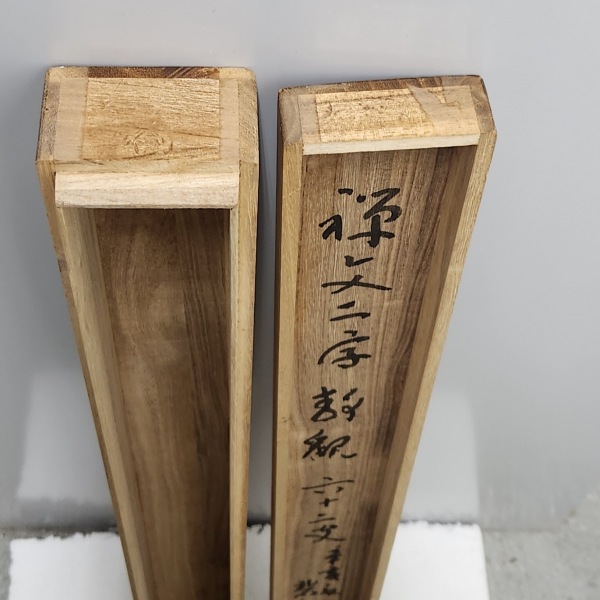 禅文二字 静観 六十二叟